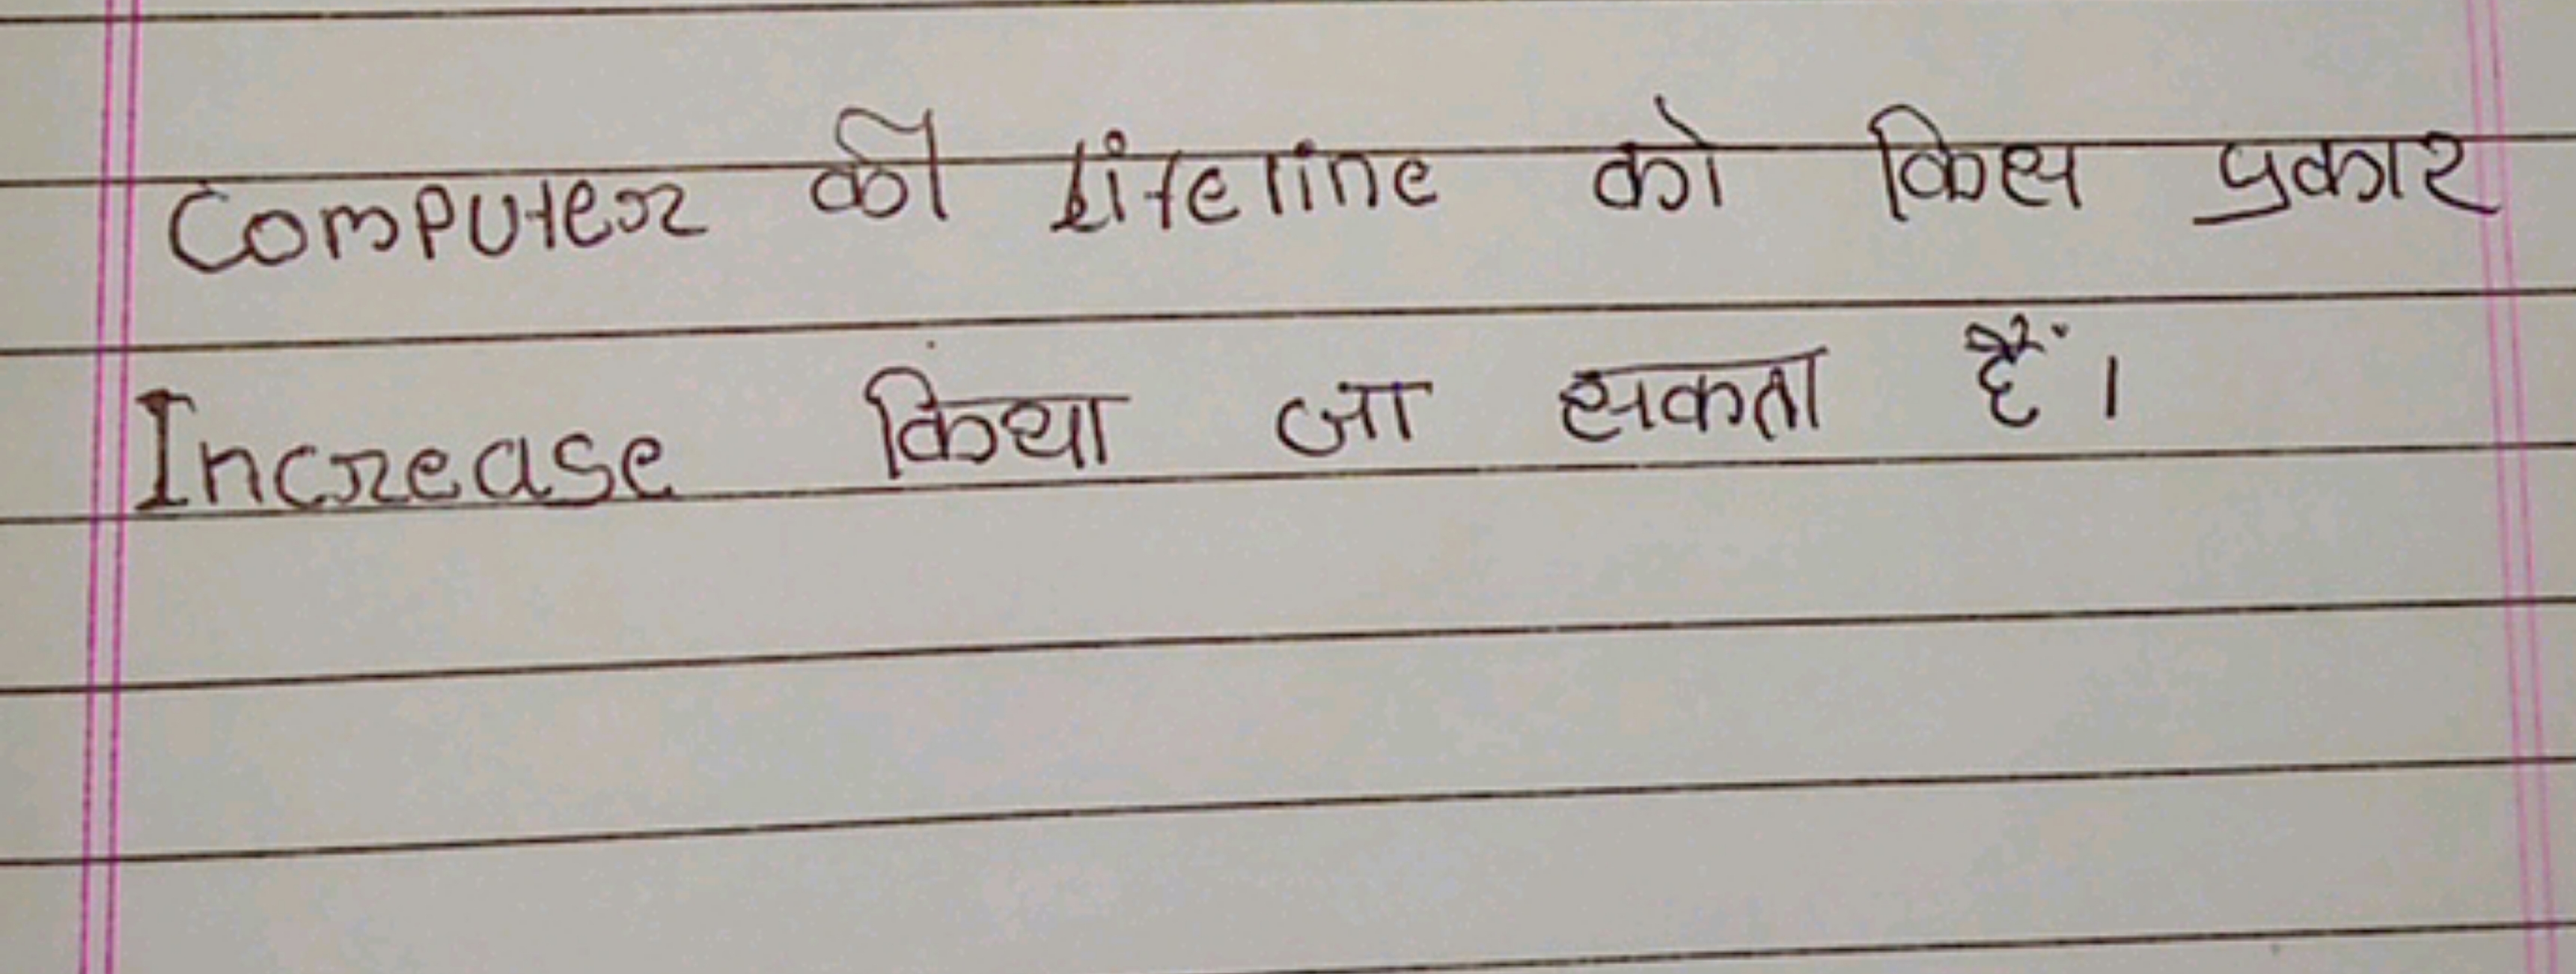 Computer की lifeline को किस प्रकार
Increase किया जा सकता हैं।